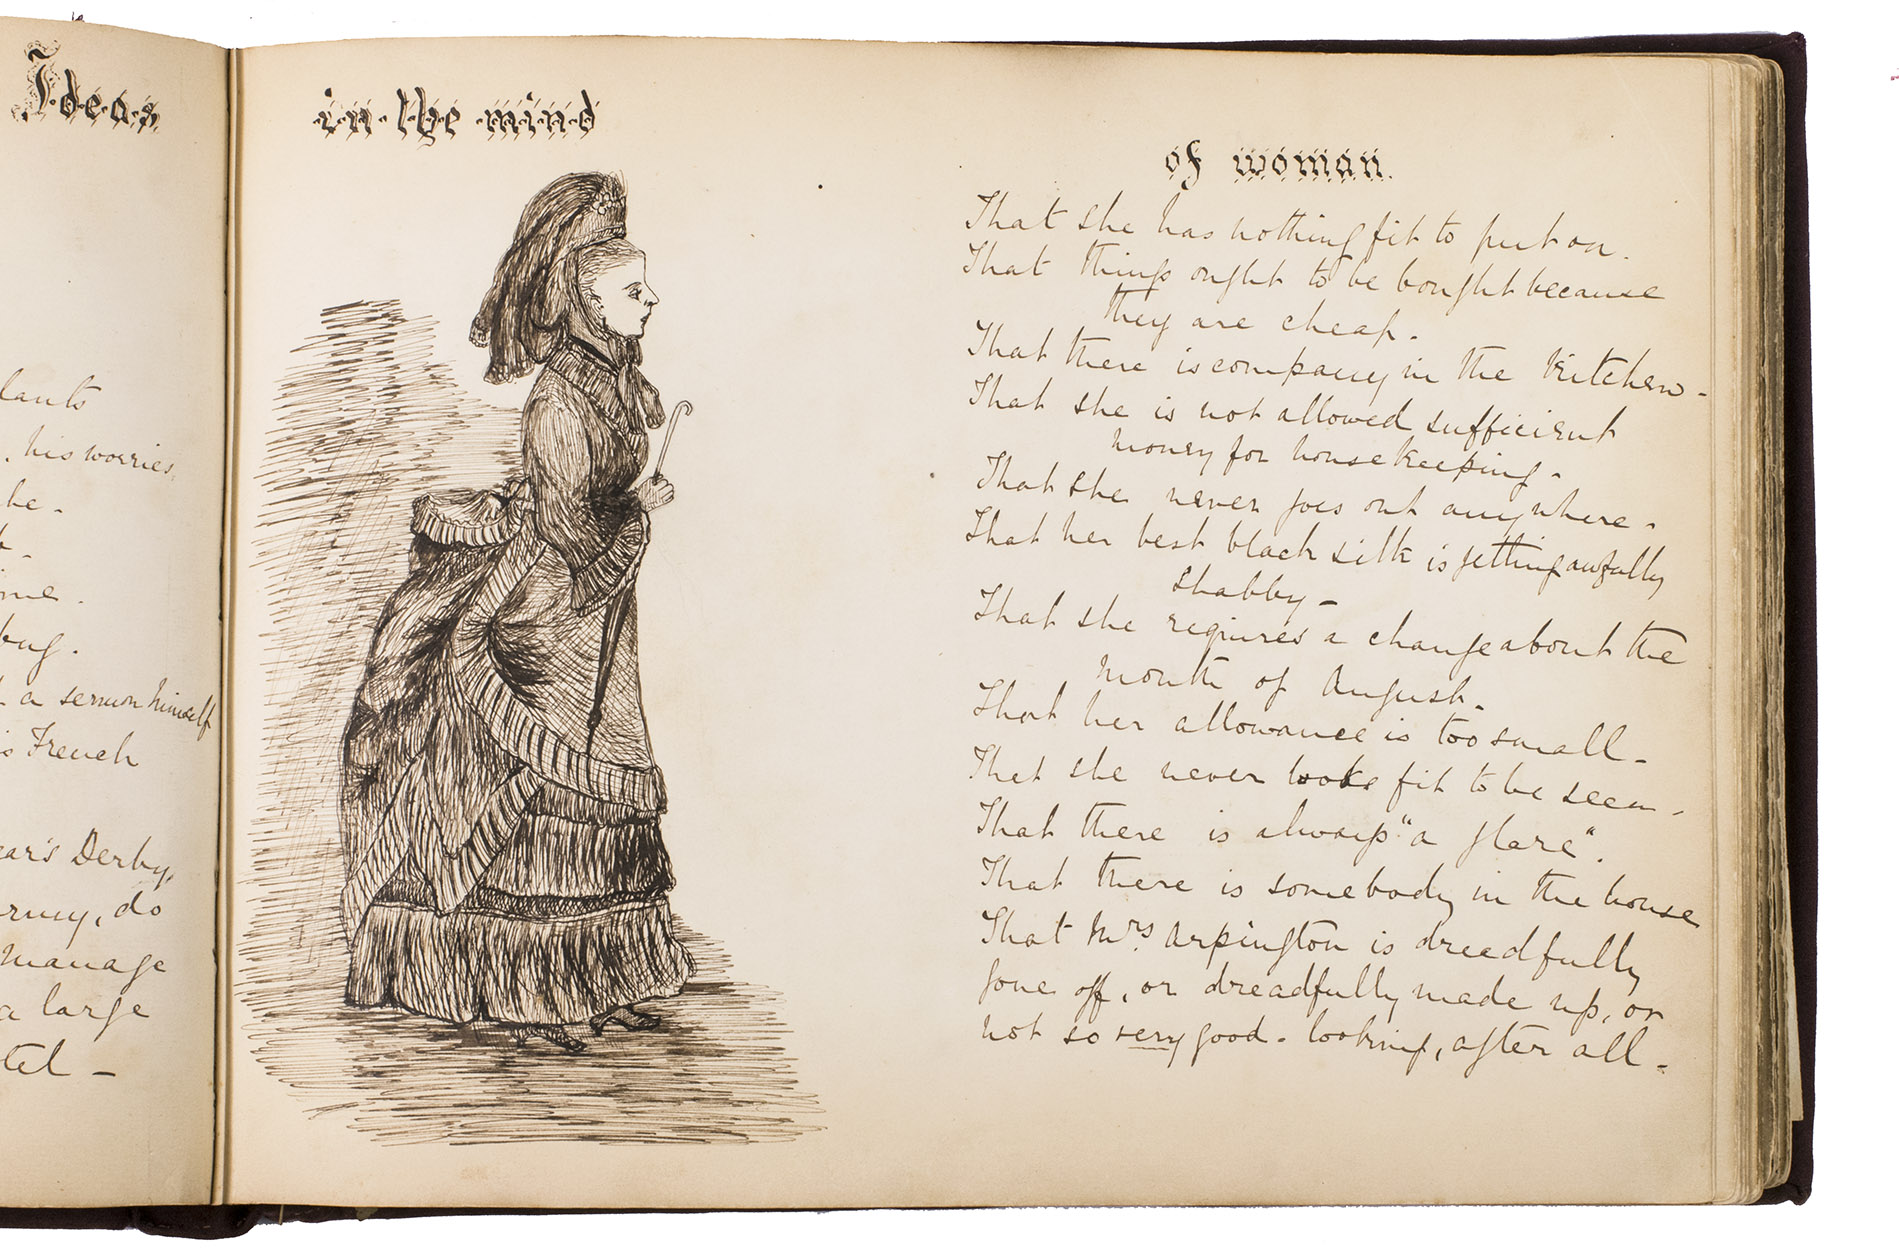 Ideas
lants
, his worries.
he.
me.
bug.
a sermon himself
is French
ear's Derby,
do
manage
a large
tel –
in the mind
of woman.
That she has nothing fit to put on.
That things ought to be bought because
they are cheap.
That there is company in the kitchen.
That she is not allowed sufficient
money for housekeeping.
That she never goes out anywhere.
That her best black silk is getting awfully
shabby –
That she requires a change about the
month of August.
That her allowance is too small.
That she never looks fit to be seen.
That there is always "a glare".
That there is somebody in the house
That Mrs Arpington is dreadfully
gone off, or dreadfully made up, or
not so very good-looking, after all.